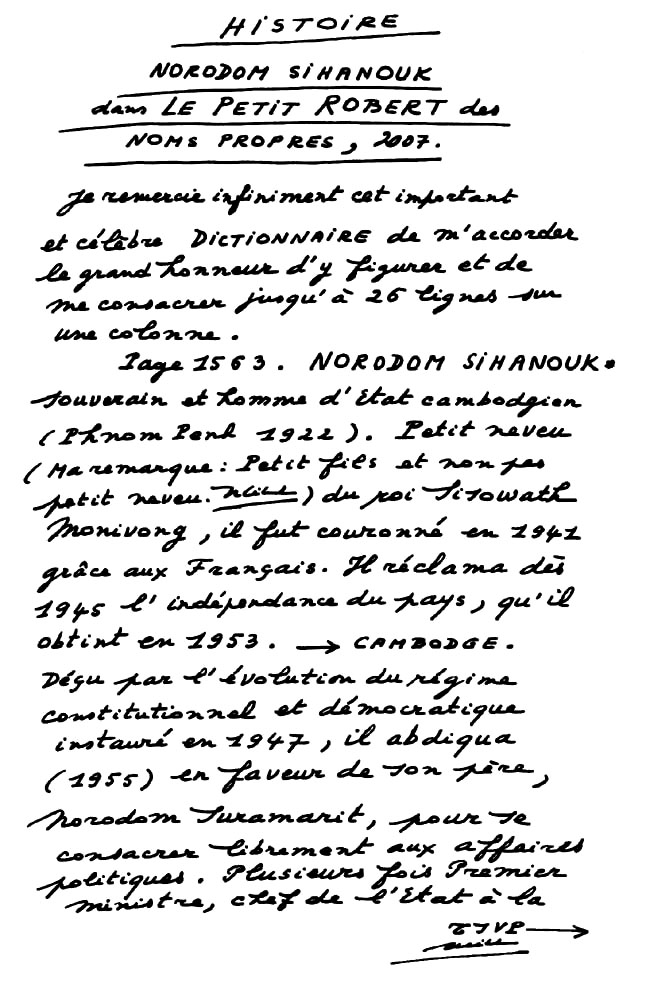 HISTOIRE
NORODOM SIHANOUK
dans LE PETIT ROBERT des
NOMS PROPRES, 2007.
Je remercie infiniment cet important
et célèbre DICTIONNAIRE de m'accorder
le grand honneur d'y figurer et de
me consacrer jusqu'à 26 lignes sur
une colonne.
Page 1563. NORODOM SIHANOUK.
Souverain et homme d'Etat cambodgien
(Phnom Penh 1922). Petit neveu
(Ma remarque : Petit fils et non pas
petit neveu.) du roi Sisowath
Monivong, il fut couronné en 1941
grâce aux Français. Il réclama dès
1945 l'indépendance du pays, qu'il
obtint en 1953. → CAMBODGE.
Déçu par l'évolution du régime
constitutionnel et démocratique
instauré en 1947, il abdiqua
(1955) en faveur de son père,
Norodom Suramarit, pour se
consacrer librement aux affaires
politiques. Plusieurs fois Premier
ministre, chef de l'Etat à la
TSVP →